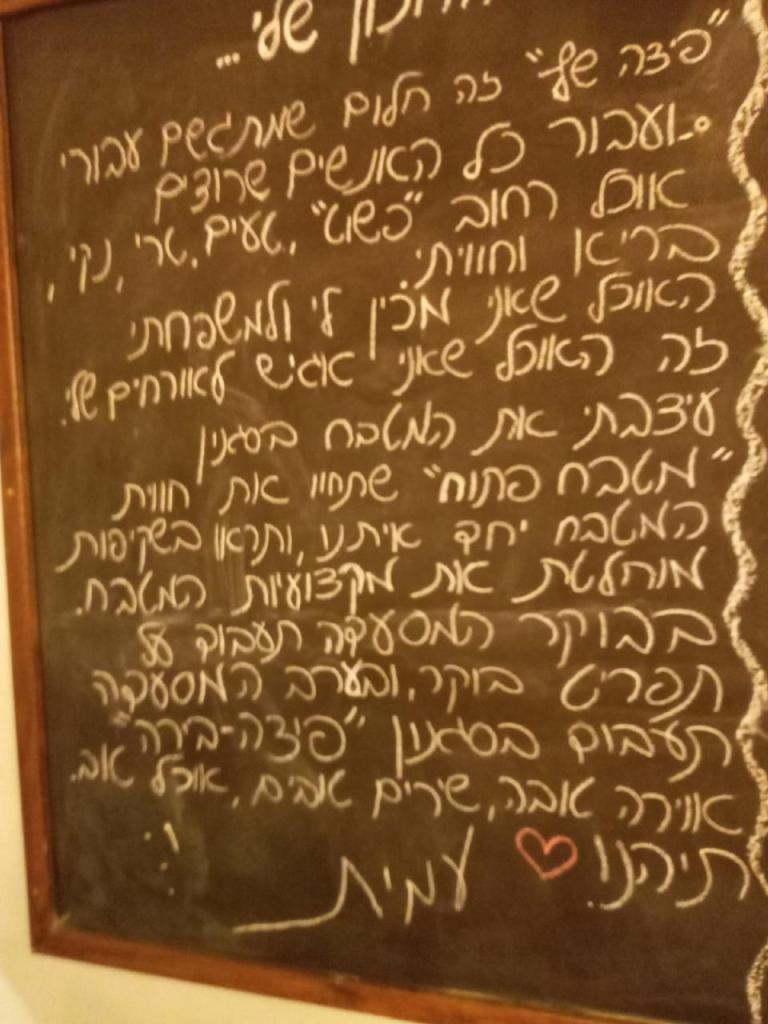 שלי...
"פיצה שף" זה חלום שמתגשם עבורי
ועבור כל האנשים שרוצים
אוכל רחוב "פשוט", טעים, טרי, נקי,
בריא וחוויתי.
האוכל שאני מכין לי ולמשפחתי
זה האוכל שאני אגיש לאורחים שלי.
עיצבתי את המטבח בסגנון
"מטבח פתוח" שתחיו את חווית
המטבח יחד איתנו, ותראו בשקיפות
מוחלטת את מקצועיות המטבח.
בבוקר המסעדה תעבוד על
תפריט בוקר, ובערב המסעדה
תעבוד בסגנון "פיצה-בירה"
אוירה טובה, שירים טובים, אוכל טוב.
תיהנו. ♡ עמית